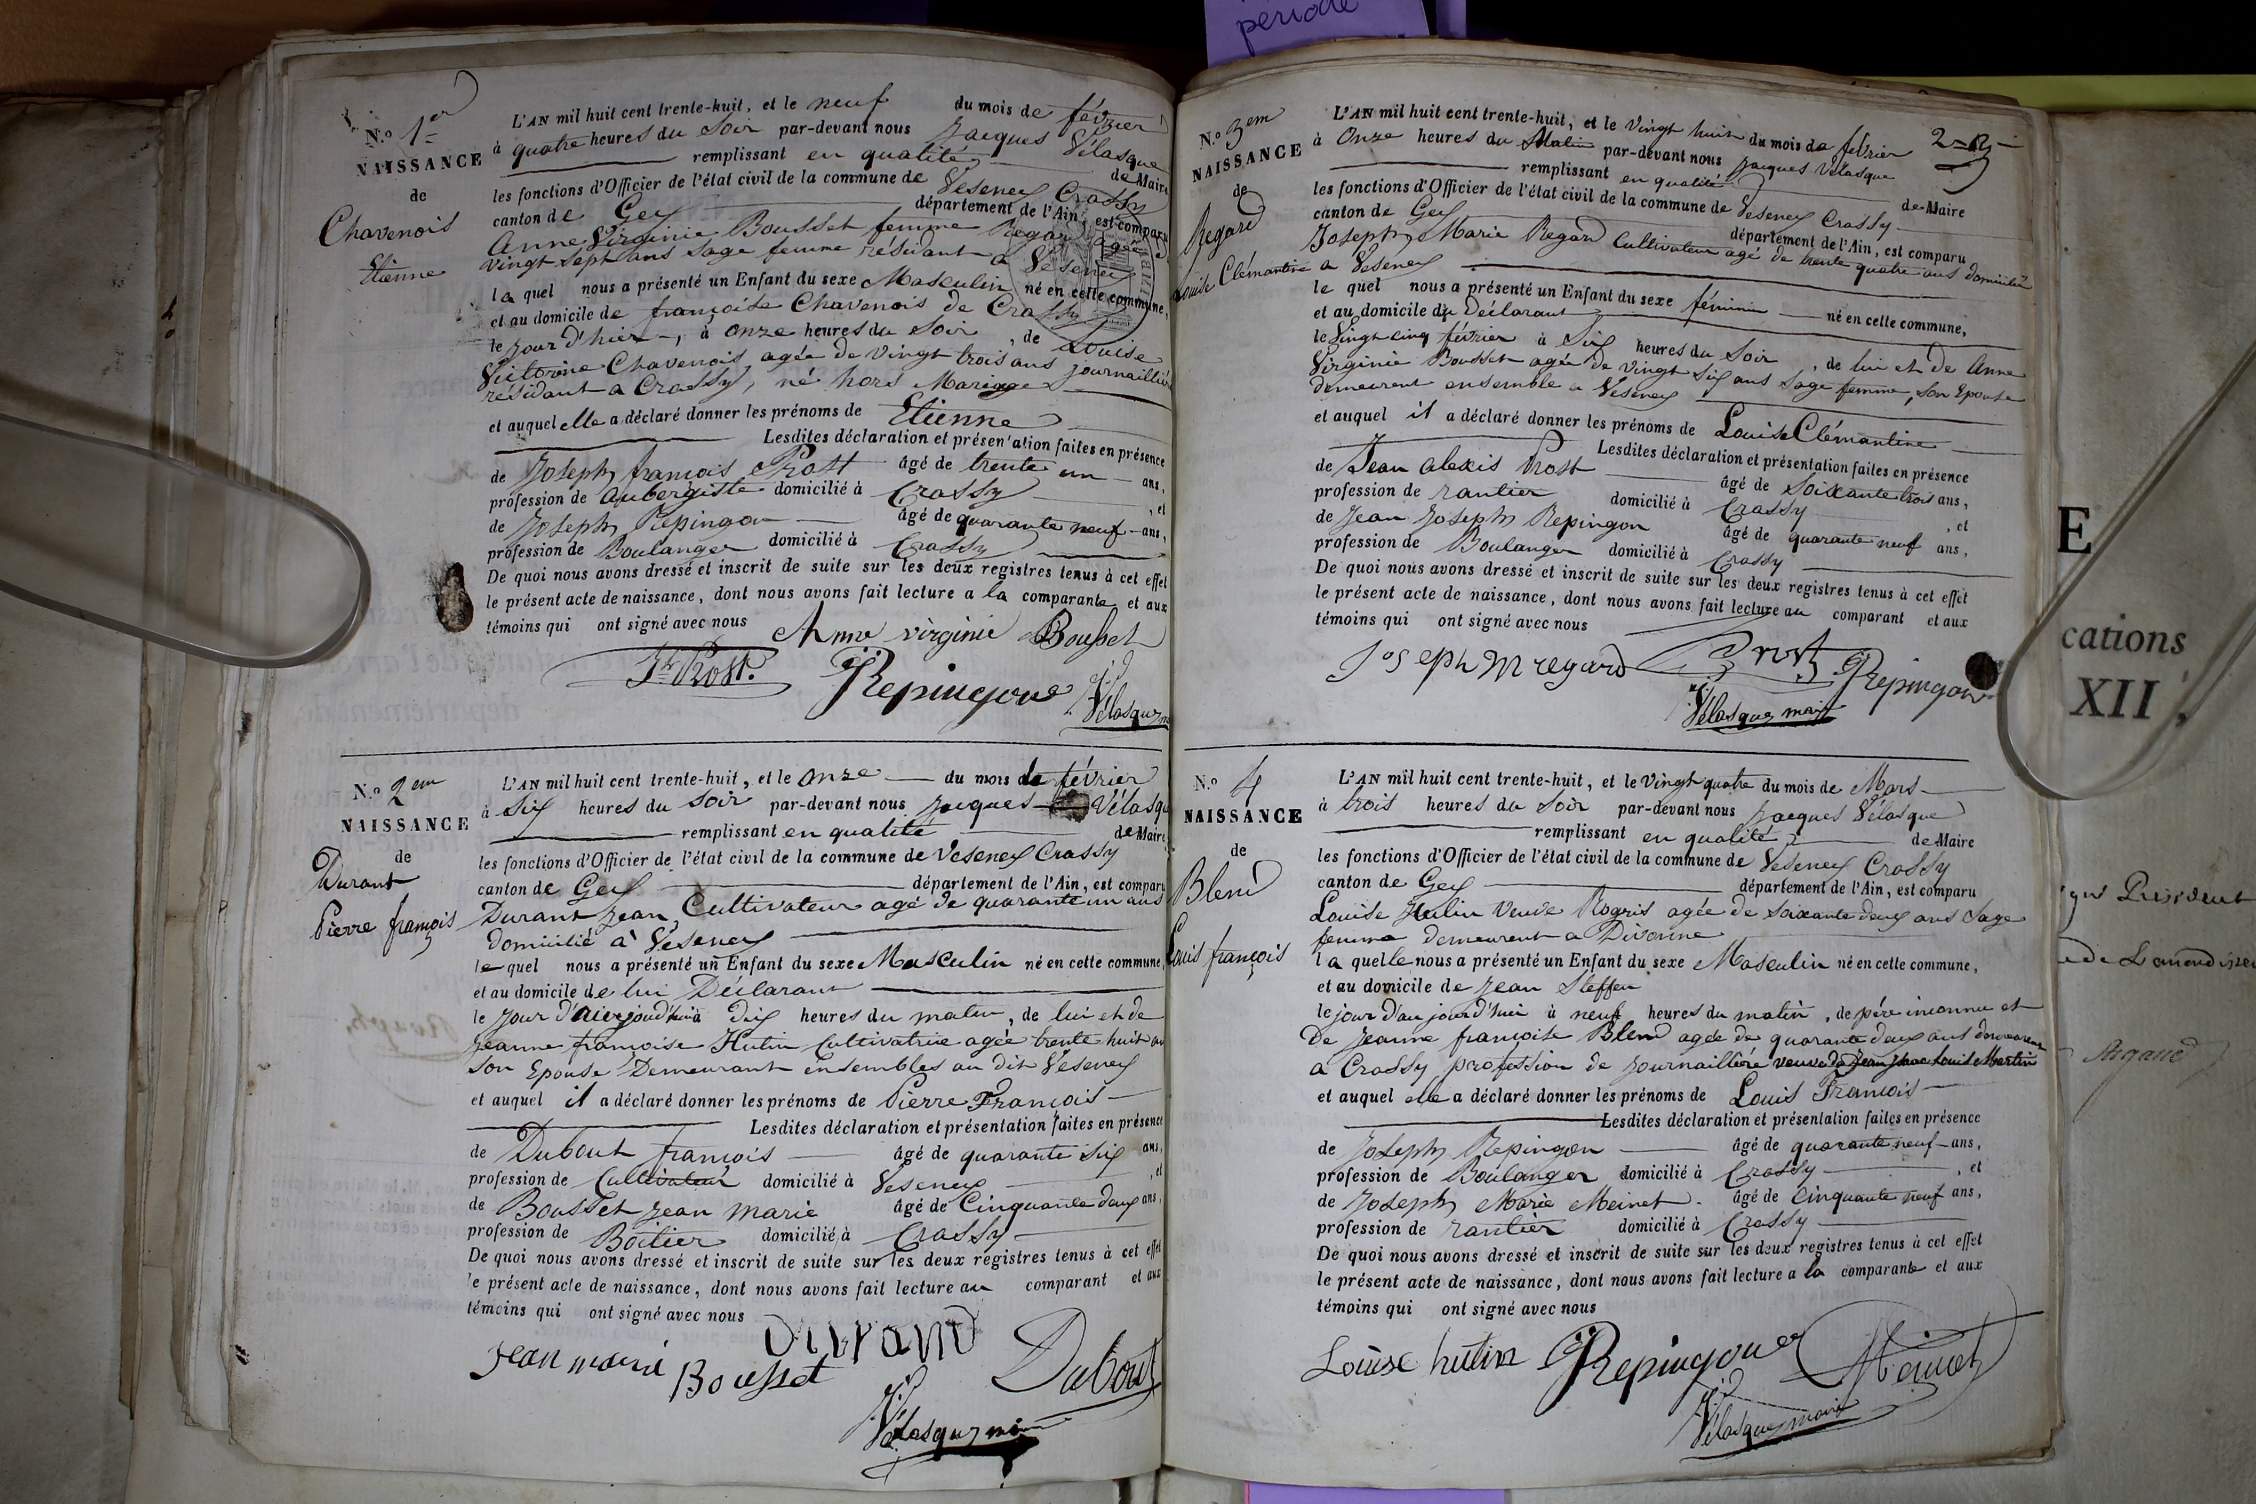 période
N.o 1er
NAISSANCE
de
Chavenois
Etienne
L'AN mil huit cent trente-huit, et le neuf du mois de février
à quatre heures du Soir par-devant nous Jacques Vélasque
remplissant en qualité de Maire
les fonctions d'Officier de l'état civil de la commune de Vesenex Crassy
canton de Gex département de l'Ain, est comparu
Anne Virginie Bousset femme Regard agée
vingt sept ans Sage femme résidant a Vesenex
la quel nous a présenté un Enfant du sexe Masculin né en cette commune,
et au domicile de françoise Chavenois de Crassy
le jour d'hier, à onze heures du Soir, de Louise
Victorine Chavenois agée de vingt trois ans journaillière
résidant a Crassy, né hors Mariage
et auquel elle a déclaré donner les prénoms de Etienne
Lesdites déclaration et présentation faites en présence
de Joseph françois Prost âgé de trente un ans,
profession de aubergiste domicilié à Crassy, et
de Joseph Repingon âgé de quarante neuf ans,
profession de Boulanger domicilié à Crassy
De quoi nous avons dressé et inscrit de suite sur les deux registres tenus à cet effet
le présent acte de naissance, dont nous avons fait lecture a la comparante et aux
témoins qui ont signé avec nous
Anne virginie Bousset
Prost. Repingone
Vélasque
N.o 2em
NAISSANCE
de
Durant
Pierre françois
L'AN mil huit cent trente-huit, et le onze du mois de février
à Six heures du soir par-devant nous Jacques Vélasque
remplissant en qualité de Maire
les fonctions d'Officier de l'état civil de la commune de Vesenex Crassy
canton de Gex département de l'Ain, est comparu
Durant Jean Cultivateur agé de quarante un ans
domicilié à Vesenex
le quel nous a présenté un Enfant du sexe Masculin né en cette commune,
et au domicile de lui Déclarant
le jour d'aujourd'hui à dix heures du matin, de lui et de
Jeanne françoise Hutin Cultivatrice agée trente huit ans
son Epouse Demeurant ensembles au dit Vesenex
et auquel il a déclaré donner les prénoms de Pierre François
Lesdites déclaration et présentation faites en présence
de Dubout françois âgé de quarante Six ans,
profession de Cultivateur domicilié à Vesenex, et
de Bousset Jean marie âgé de Cinquante deux ans,
profession de Boitier domicilié à Crassy
De quoi nous avons dressé et inscrit de suite sur les deux registres tenus à cet effet
le présent acte de naissance, dont nous avons fait lecture au comparant et aux
témoins qui ont signé avec nous
Durand
Jean marie Bousset Dubout
Vélasque maire
2
N.o 3em
NAISSANCE
de
Regard
Louise Clémantine
L'AN mil huit cent trente-huit, et le vingt huit du mois de février
à Onze heures du Matin par-devant nous Jacques Vélasque
remplissant en qualité de Maire
les fonctions d'Officier de l'état civil de la commune de Vesenex Crassy
canton de Gex département de l'Ain, est comparu
Joseph Marie Regard Cultivateur agé de trente quatre ans domicilié
a Vesenex
le quel nous a présenté un Enfant du sexe féminin né en cette commune,
et au domicile du Déclarant
le Vingt cinq février à Six heures du Soir, de lui et de Anne
Virginie Bousset agée de vingt six ans Sage femme, son Epouse
demeurent ensemble a Vesenex
et auquel il a déclaré donner les prénoms de Louise Clémantine
Lesdites déclaration et présentation faites en présence
de Jean Alexis Prost âgé de Soixante trois ans,
profession de rantier domicilié à Crassy, et
de Jean Joseph Repingon âgé de quarante neuf ans,
profession de Boulanger domicilié à Crassy
De quoi nous avons dressé et inscrit de suite sur les deux registres tenus à cet effet
le présent acte de naissance, dont nous avons fait lecture au comparant et aux
témoins qui ont signé avec nous
Joseph M regard Prost Repingone
Vélasque maire
N.o 4
NAISSANCE
de
Blend
Louis françois
L'AN mil huit cent trente-huit, et le vingt quatre du mois de Mars
à trois heures du Soir par-devant nous Jacques Vélasque
remplissant en qualité de Maire
les fonctions d'Officier de l'état civil de la commune de Vesenex Crassy
canton de Gex département de l'Ain, est comparu
Louise Hutin Veuve Rogris agée de soixante deux ans Sage
femme demeurent a Divonne
la quelle nous a présenté un Enfant du sexe Masculin né en cette commune,
et au domicile de Jean Steffen
le jour d'aujourd'hui à neuf heures du matin, de père inconnu et
De Jeanne françoise Blend agée de quarante deux ans demeurant
a Crassy profession de journaillère veuve de Jean Marc Louis Martin
et auquel elle a déclaré donner les prénoms de Louis François
Lesdites déclaration et présentation faites en présence
de Joseph Repingon âgé de quarante neuf ans,
profession de Boulanger domicilié à Crassy, et
de Joseph Marie Meinet âgé de Cinquante neuf ans,
profession de rantier domicilié à Crassy
De quoi nous avons dressé et inscrit de suite sur les deux registres tenus à cet effet
le présent acte de naissance, dont nous avons fait lecture a la comparante et aux
témoins qui ont signé avec nous
Louise hutin Repingone Meinet
Vélasque maire
E
cations
XII,
Président